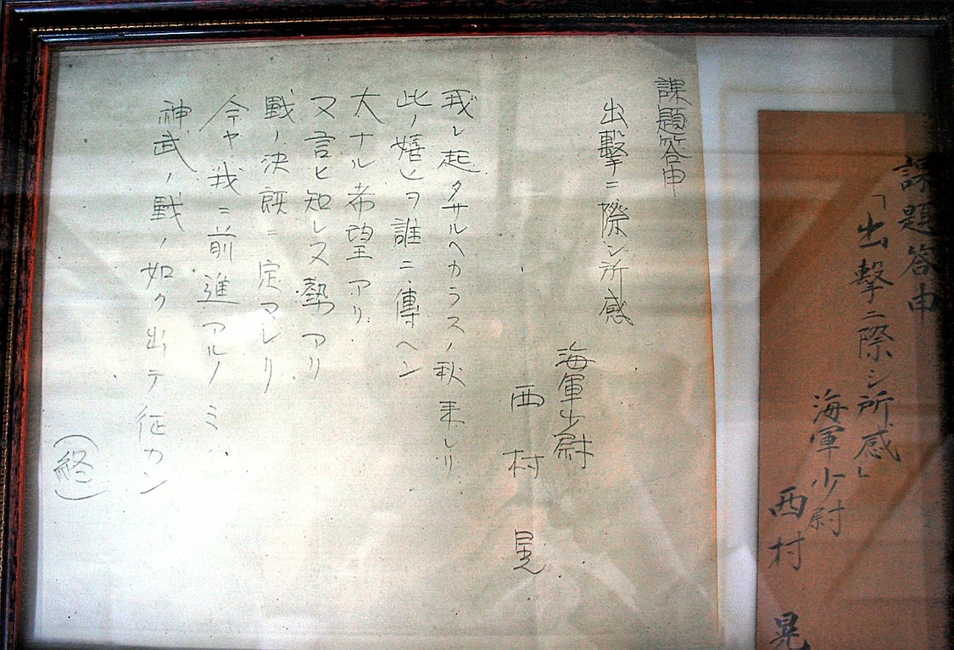 課題答申
「出擊ニ際シ所感」
海軍少尉
西村 晃
課題答申
出擊ニ際シ所感
海軍少尉
西村 晃
我レ起タサルヘカラスノ秋来レリ
此ノ嬉ヒヲ誰ニ傳ヘン
大ナル希望アリ
又言ヒ知レヌ勢アリ
戰ノ決既ニ定マレリ
今ヤ我ニ前進アルノミ
神武ノ戰ノ如ク出テ征カン
(終)